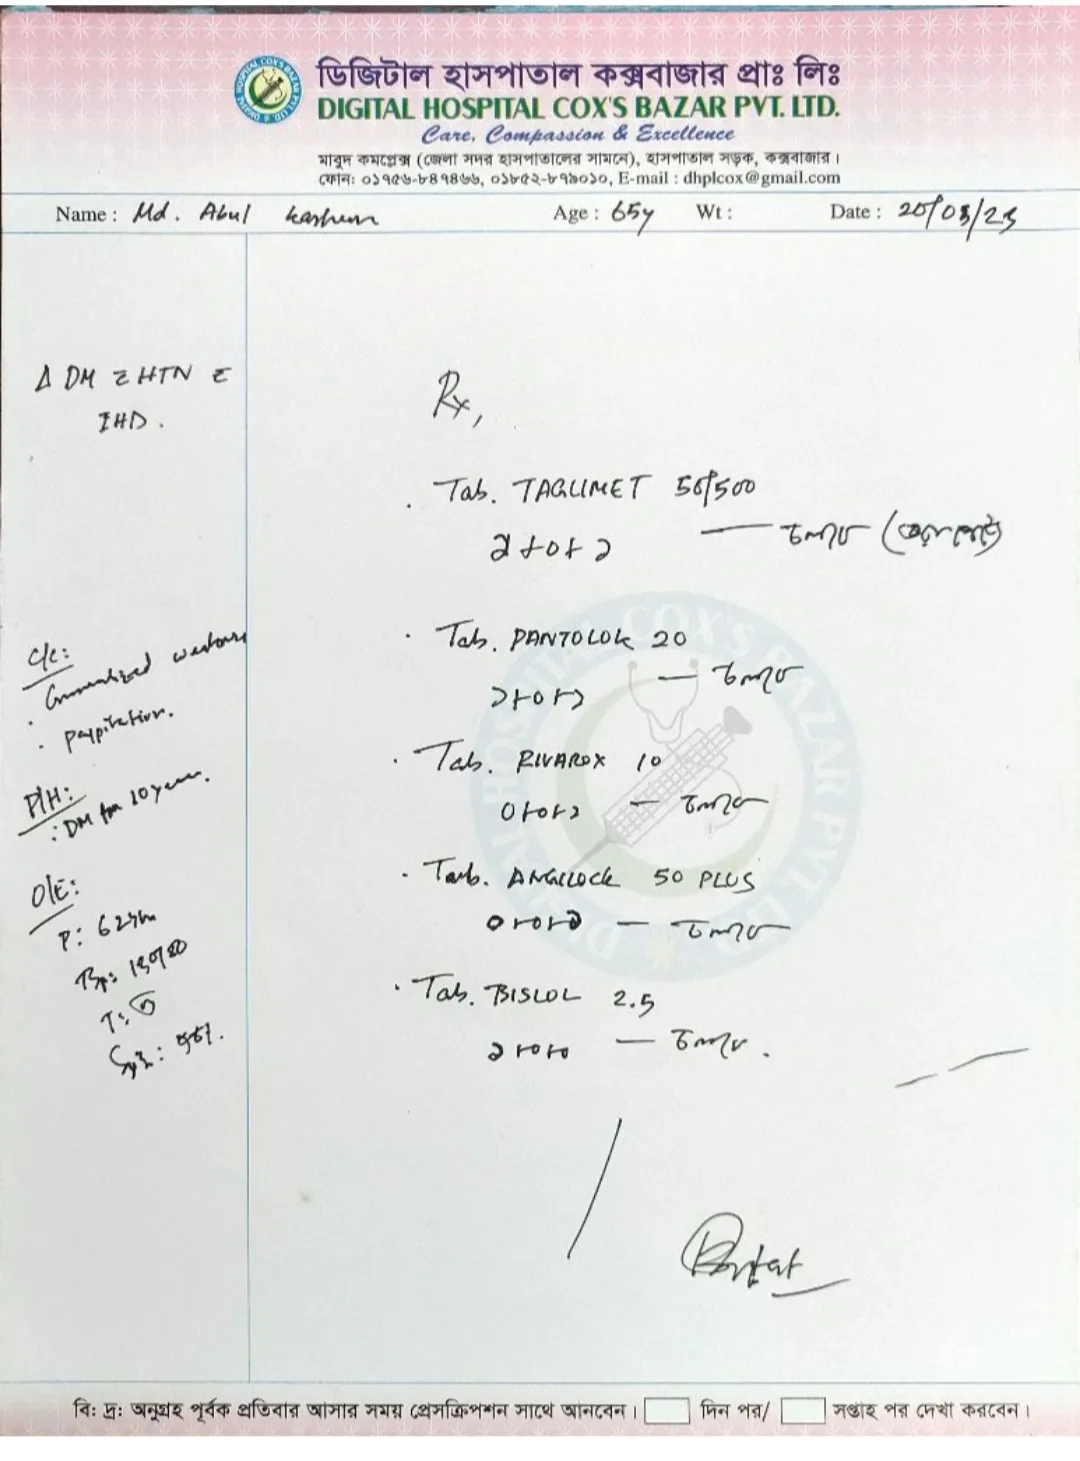 ডিজিটাল হাসপাতাল কক্সবাজার প্রাঃ লিঃ
DIGITAL HOSPITAL COX'S BAZAR PVT. LTD.
Care, Compassion & Excellence
মাবুদ কমপ্লেক্স (জেলা সদর হাসপাতালের সামনে), হাসপাতাল সড়ক, কক্সবাজার।
ফোন: ০১৭৫৬-৮৪৭৪৬৬, ০১৮৫২-৮৭৯০১০, E-mail : dhplcox@gmail.com
Name : Md. Abul Kashem Age : 65y Wt : Date :
Δ DM HTN
IHD.
Rx,
Tab. TAGLIMET 50/500
১+০+১ — চলবে
C/C:
· Generalized
· Palpitation.
P/H:
: DM for 10 years.
O/E:
P:
BP:
T:
· Tab. PANTOLOK 20
১+০+১ — চলবে
· Tab. RIVAROX 10
০+০+১ — চলবে
· Tab. ANGILOCK 50 PLUS
০+০+১ — চলবে
· Tab. BISLOL 2.5
১+০+০ — চলবে.
বি: দ্র: অনুগ্রহ পূর্বক প্রতিবার আসার সময় প্রেসক্রিপশন সাথে আনবেন। দিন পর/ সপ্তাহ পর দেখা করবেন।